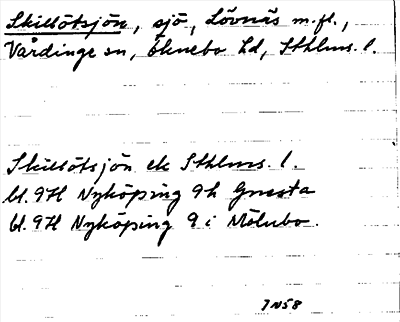 Skillötsjön, sjö, Lövnäs m.fl.,
Vårdinge sn, Öknebo hd, Sthlms. l.
Skillötsjön ek Sthlms. l.
bl. 9H Nyköping 9h Gnesta
bl. 9H Nyköping 9 i Mölnbo.
7N58